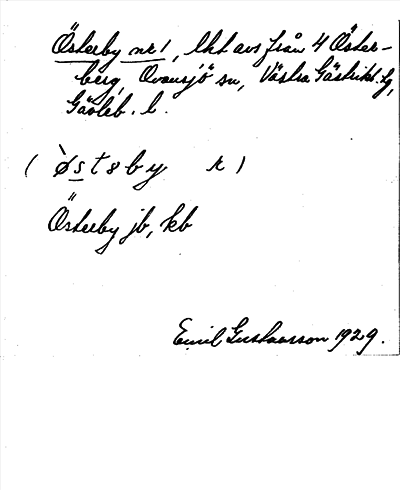 Österby nr 1, lht avs från 4 Öster-
berg, Ovansjö sn, Västra Gästrikl. hg,
Gävleb. l.
( `østəby r )
Österby jb, kb
Emil Gustavsson 1929.